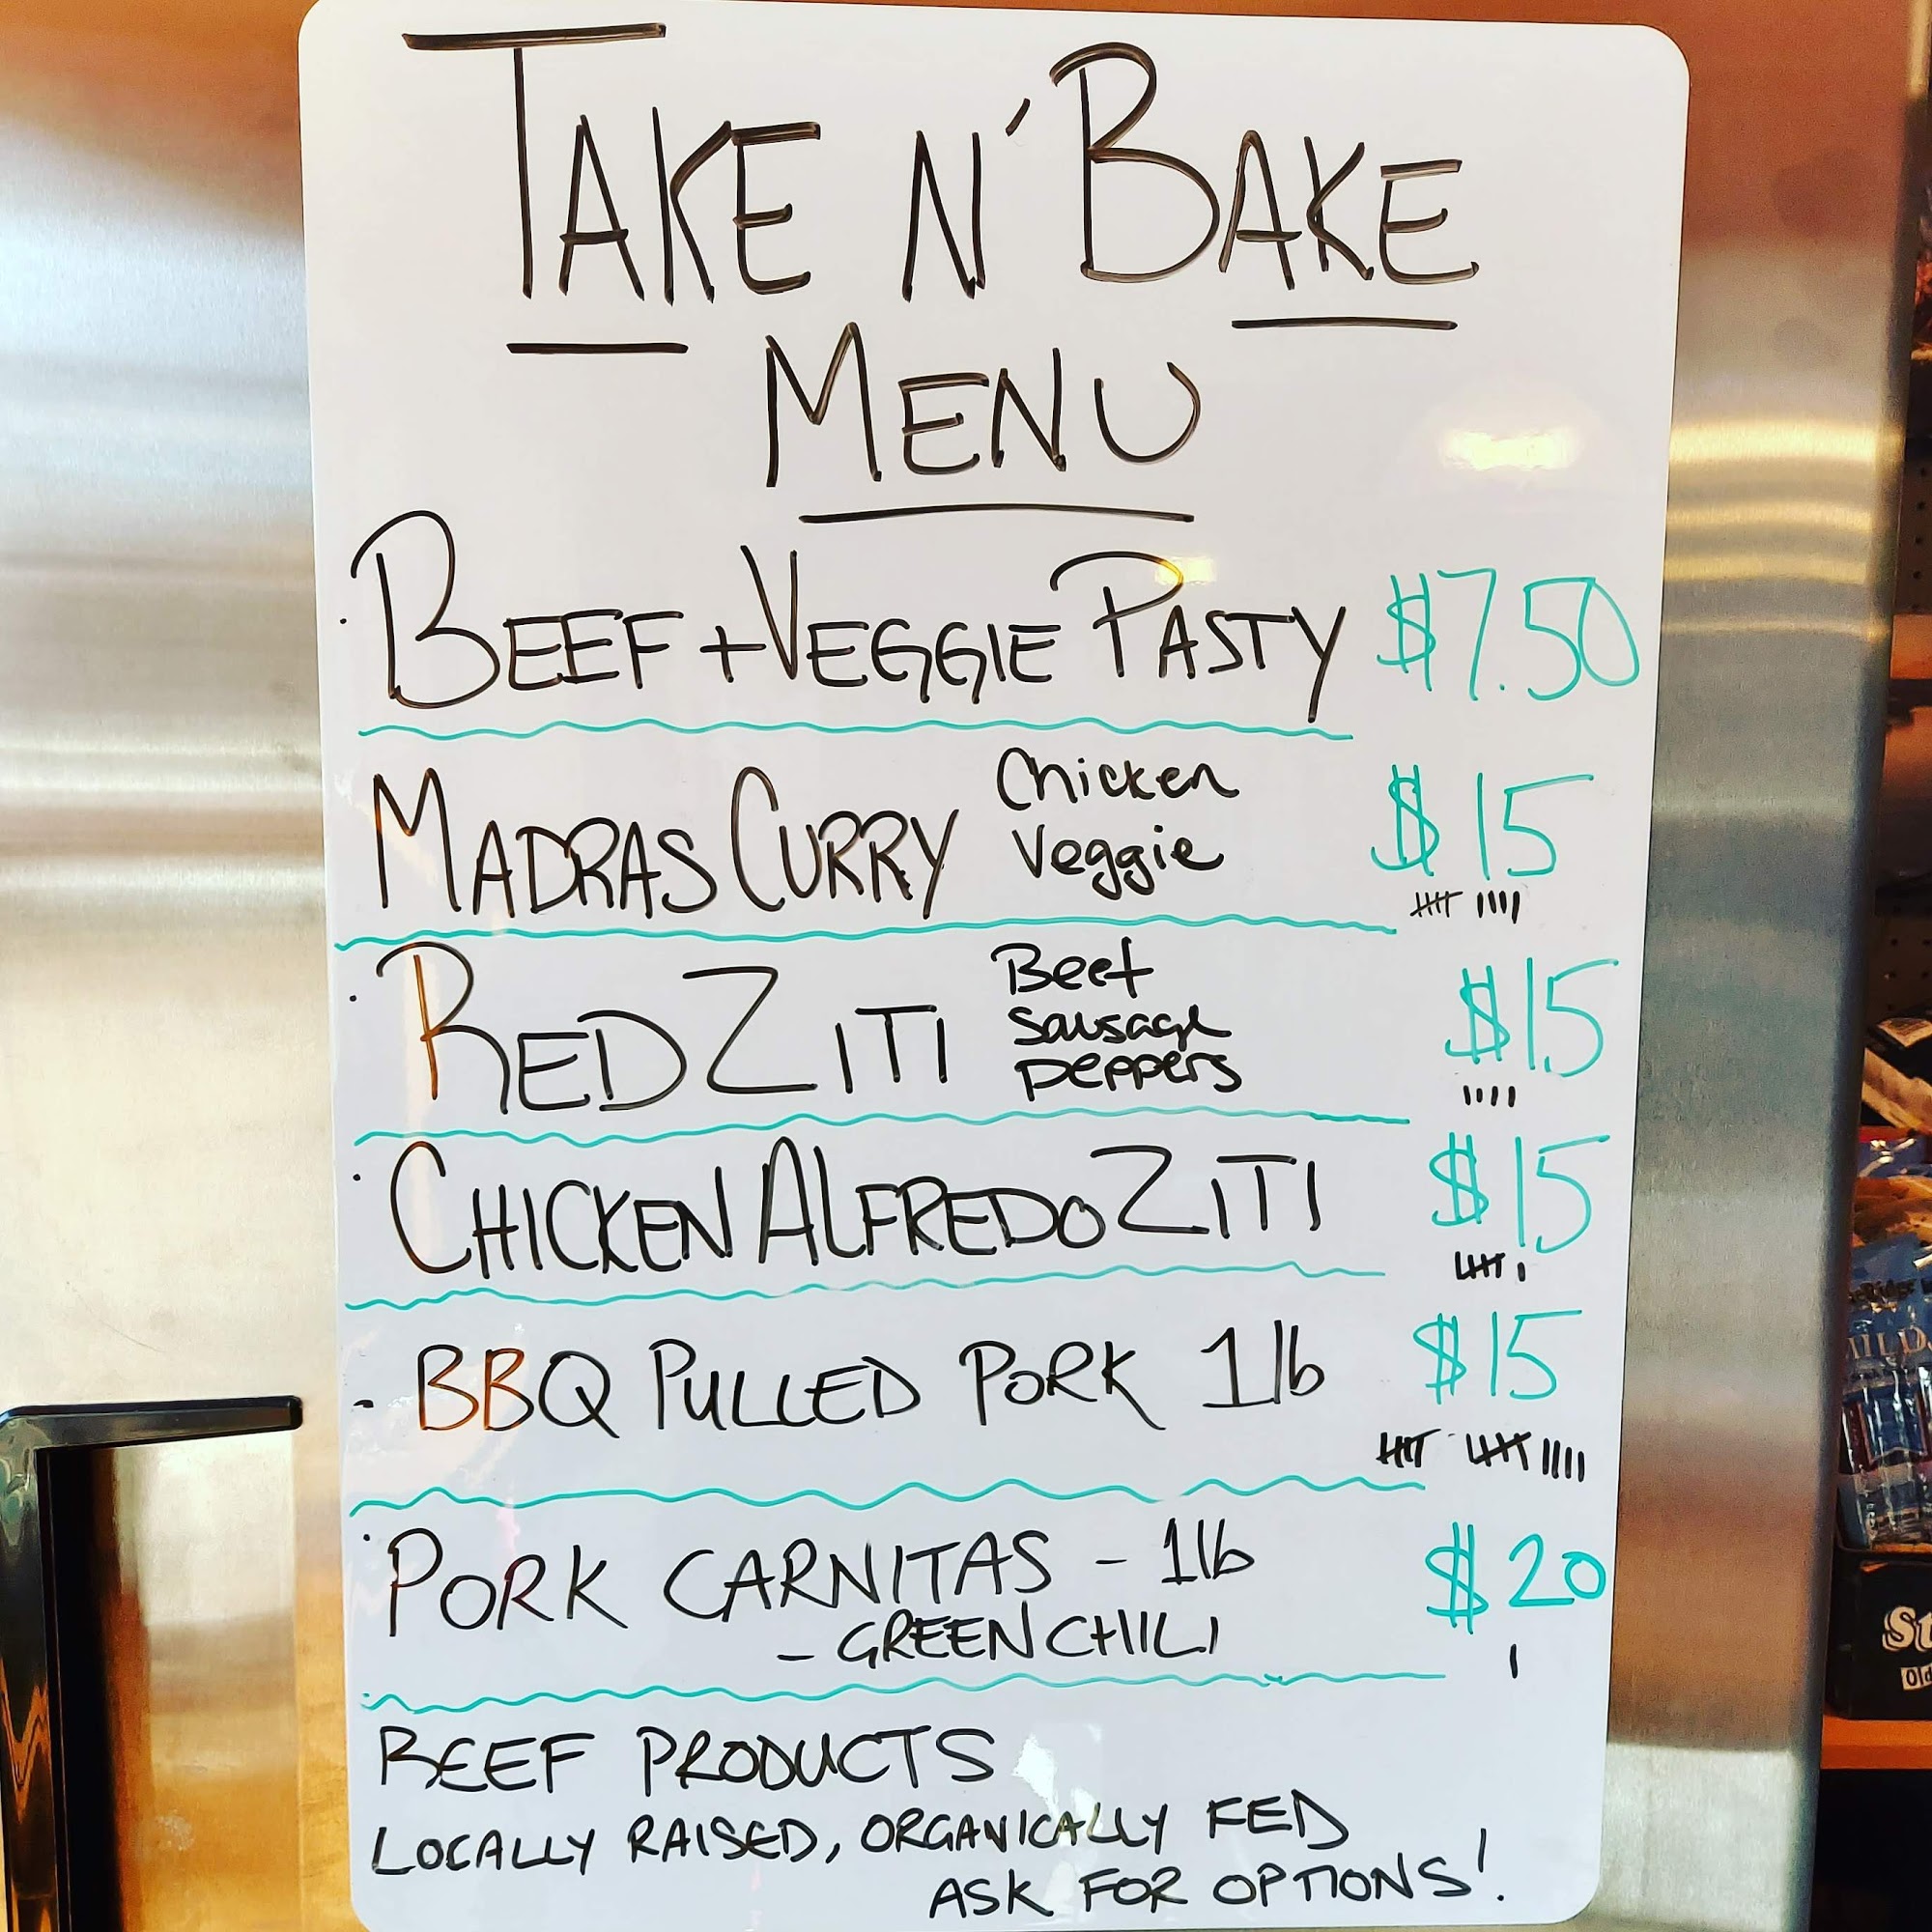 TAKE N' BAKE
MENU
BEEF + VEGGIE PASTY $7.50
MADRAS CURRY Chicken Veggie $15
RED ZITI Beef Sausage Peppers $15
CHICKEN ALFREDO ZITI $15
- BBQ PULLED PORK 1lb $15
PORK CARNITAS - 1lb $20
- GREEN CHILI
BEEF PRODUCTS
LOCALLY RAISED, ORGANICALLY FED
ASK FOR OPTIONS!
St
Old